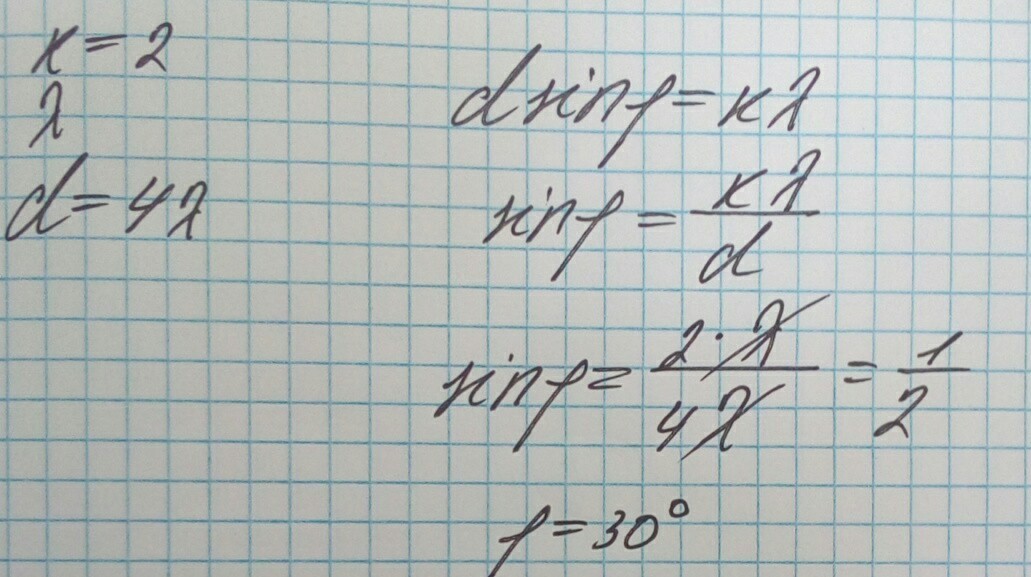 к = 2
λ
d = 4λ
d sin φ = кλ
sin φ = кλ / d
sin φ = 2·λ / 4λ = 1 / 2
φ = 30°